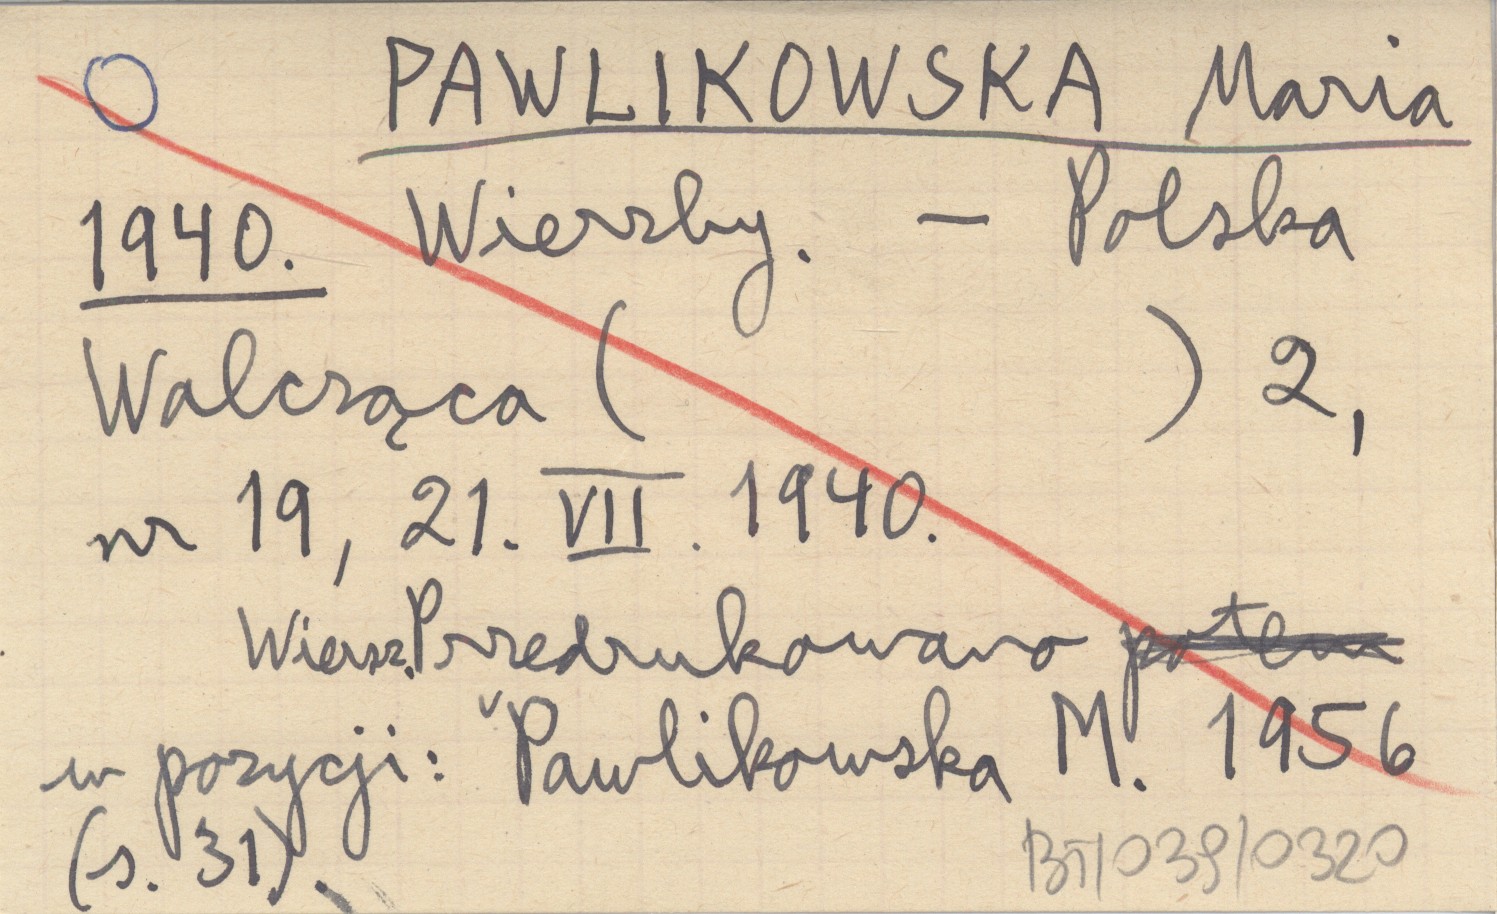 PAWLIKOWSKA Maria
1940. Wierzby. – Polska
Walcząca ( ) 2,
nr 19, 21. VII. 1940.
Wiersz. Przedrukowano potem
w pozycji: Pawlikowska M. 1956
(s. 31).
BT/039/0320